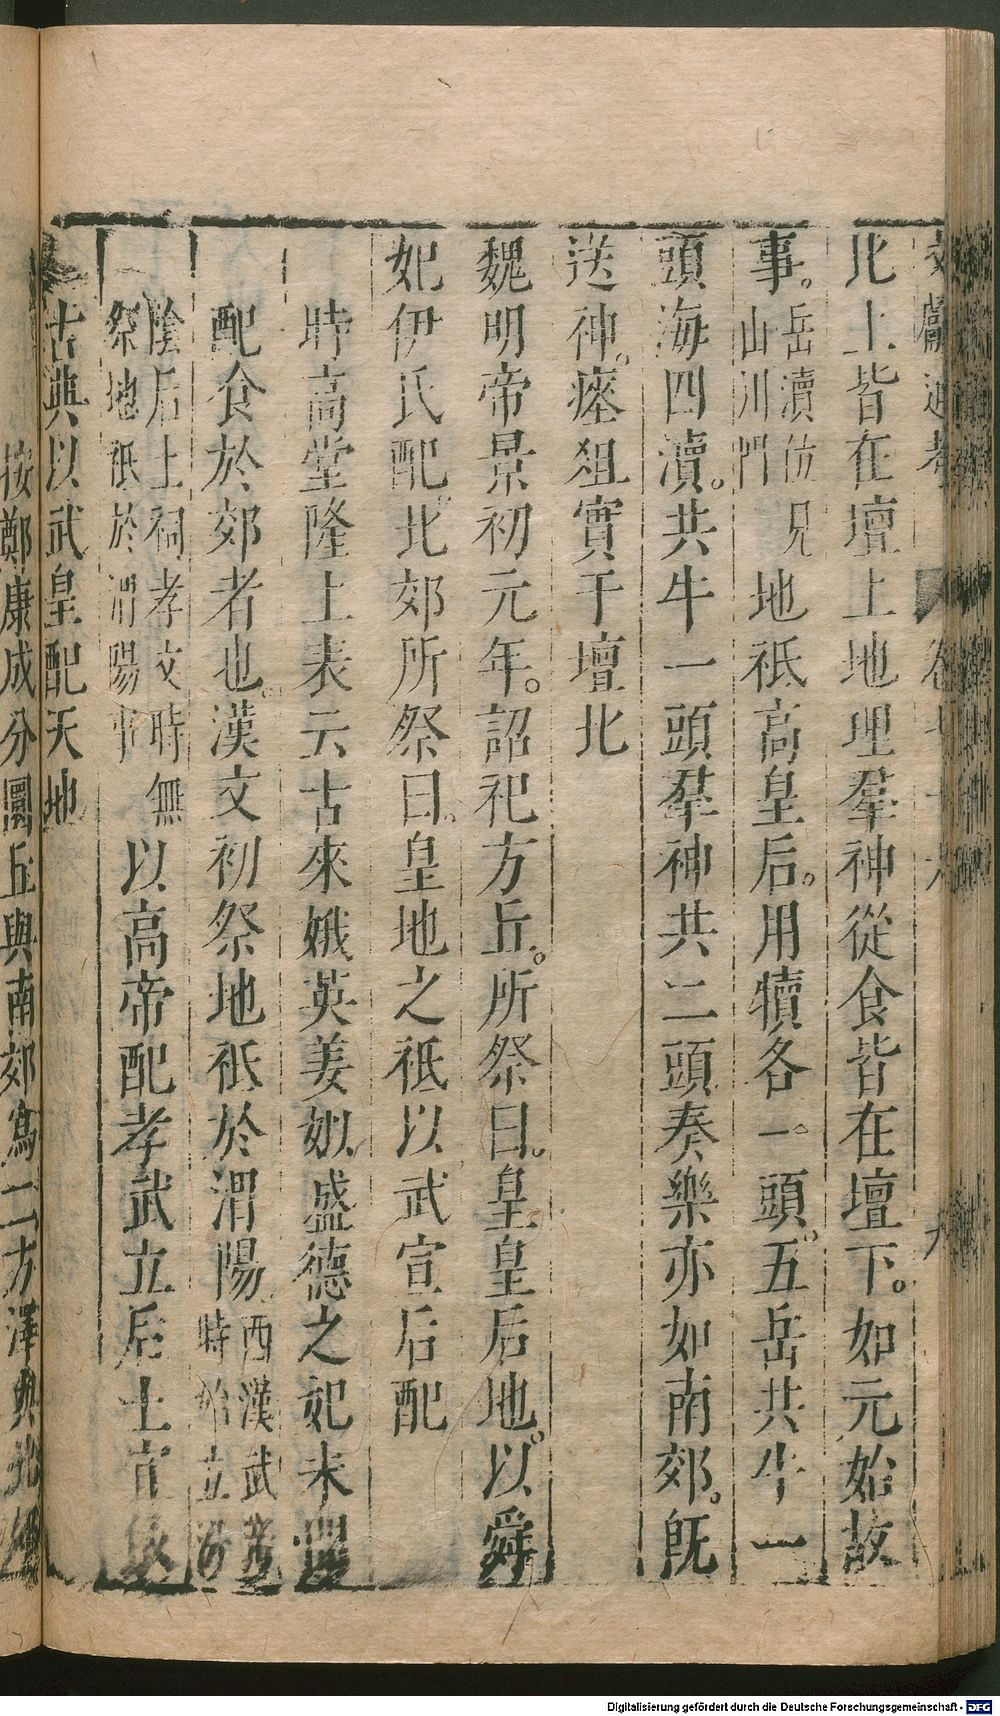 文獻通考 卷七十六 九
北上皆在壇上地理羣神從食皆在壇下。如元始故
事。岳瀆仿見山川門地祇高皇后。用犢各一頭。五岳共牛一
頭海四瀆。共牛一頭羣神共二頭奏樂亦如南郊。旣
送神。瘞俎實于壇北
魏明帝景初元年。詔祀方丘。所祭曰。皇皇后地。以舜
妃伊氏配。北郊所祭曰。皇地之祇以武宣后配
時高堂隆上表云古來娥英姜姒盛德之妃未聞
配食於郊者也。漢文初祭地祇於渭陽西漢武時始立汾
陰后土祠孝文時無祭地祇於渭陽事以高帝配孝武立后土宜依
古典以武皇配天地
按鄭康成分圜丘與南郊爲二方澤與北郊
Digitalisierung gefördert durch die Deutsche Forschungsgemeinschaft - DFG